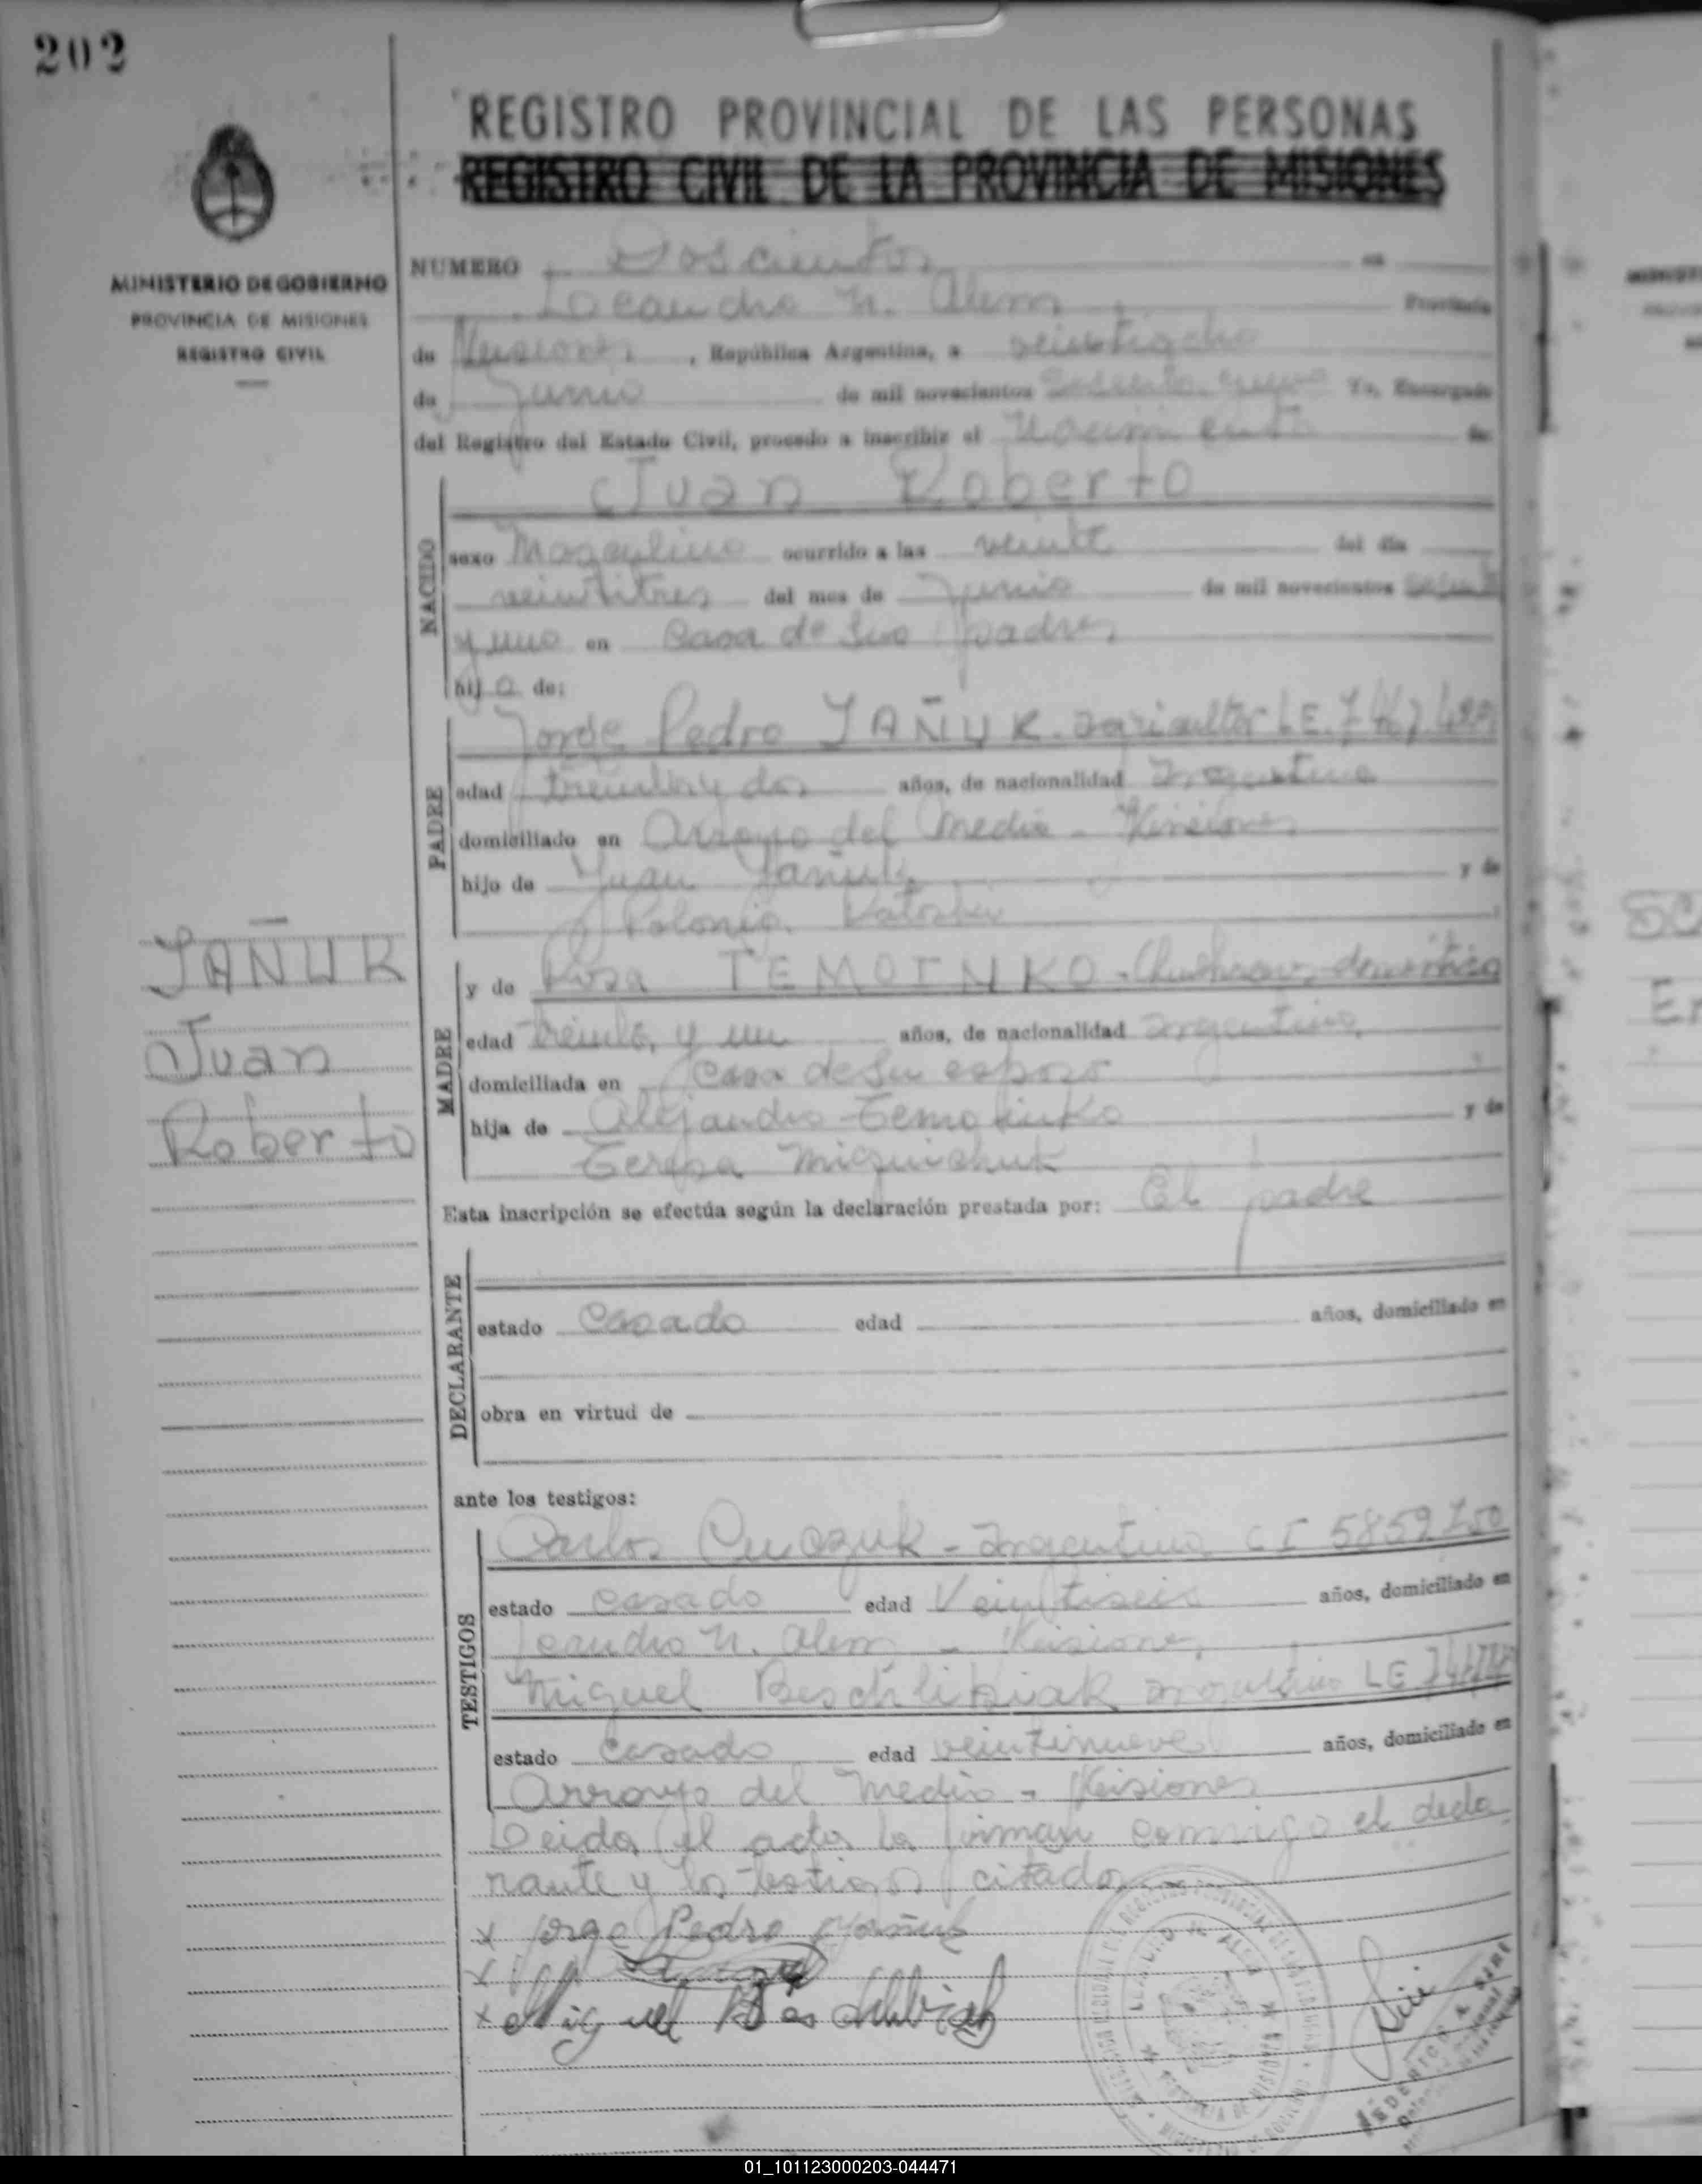 202
REGISTRO PROVINCIAL DE LAS PERSONAS
REGISTRO CIVIL DE LA PROVINCIA DE MISIONES
MINISTERIO DE GOBIERNO
PROVINCIA DE MISIONES
REGISTRO CIVIL
NUMERO Doscientos en
Leandro N. Alem Provincia
de Misiones, República Argentina, a veintiocho
de Junio de mil novecientos sesenta y uno Yo, Encargado
del Registro del Estado Civil, procedo a inscribir el Nacimiento de:
NACIDO
Juan Roberto
sexo Masculino ocurrido a las veinte del día
veintitres del mes de junio de mil novecientos sesenta
y uno en Casa de sus padres
hijo de:
PADRE
Jorge Pedro YAÑUK agricultor LE.
edad treinta y dos años, de nacionalidad argentina
domiciliado en Arroyo del Medio - Misiones
hijo de Juan Yañuk y de
Polonia
MADRE
y de Rosa TEMOINKO domestica
edad treinta y un años, de nacionalidad argentina
domiciliada en Casa de su esposo
hija de Alejandro y de
Teresa Miguichuk
YAÑUK
Juan
Roberto
Esta inscripción se efectúa según la declaración prestada por: El padre
DECLARANTE
estado Casado edad años, domiciliado en
obra en virtud de
ante los testigos:
TESTIGOS
Carlos argentino C I 5859750
estado casado edad Veintiseis años, domiciliado en
Leandro N. Alem - Misiones
Miguel argentino LE
estado Casado edad veintinueve años, domiciliado en
Arroyo del Medio - Misiones
Leida el acta la firman conmigo el decla
rante y los testigos citados
x Jorge Pedro Yañuk
x
x Miguel
01_101123000203-044471